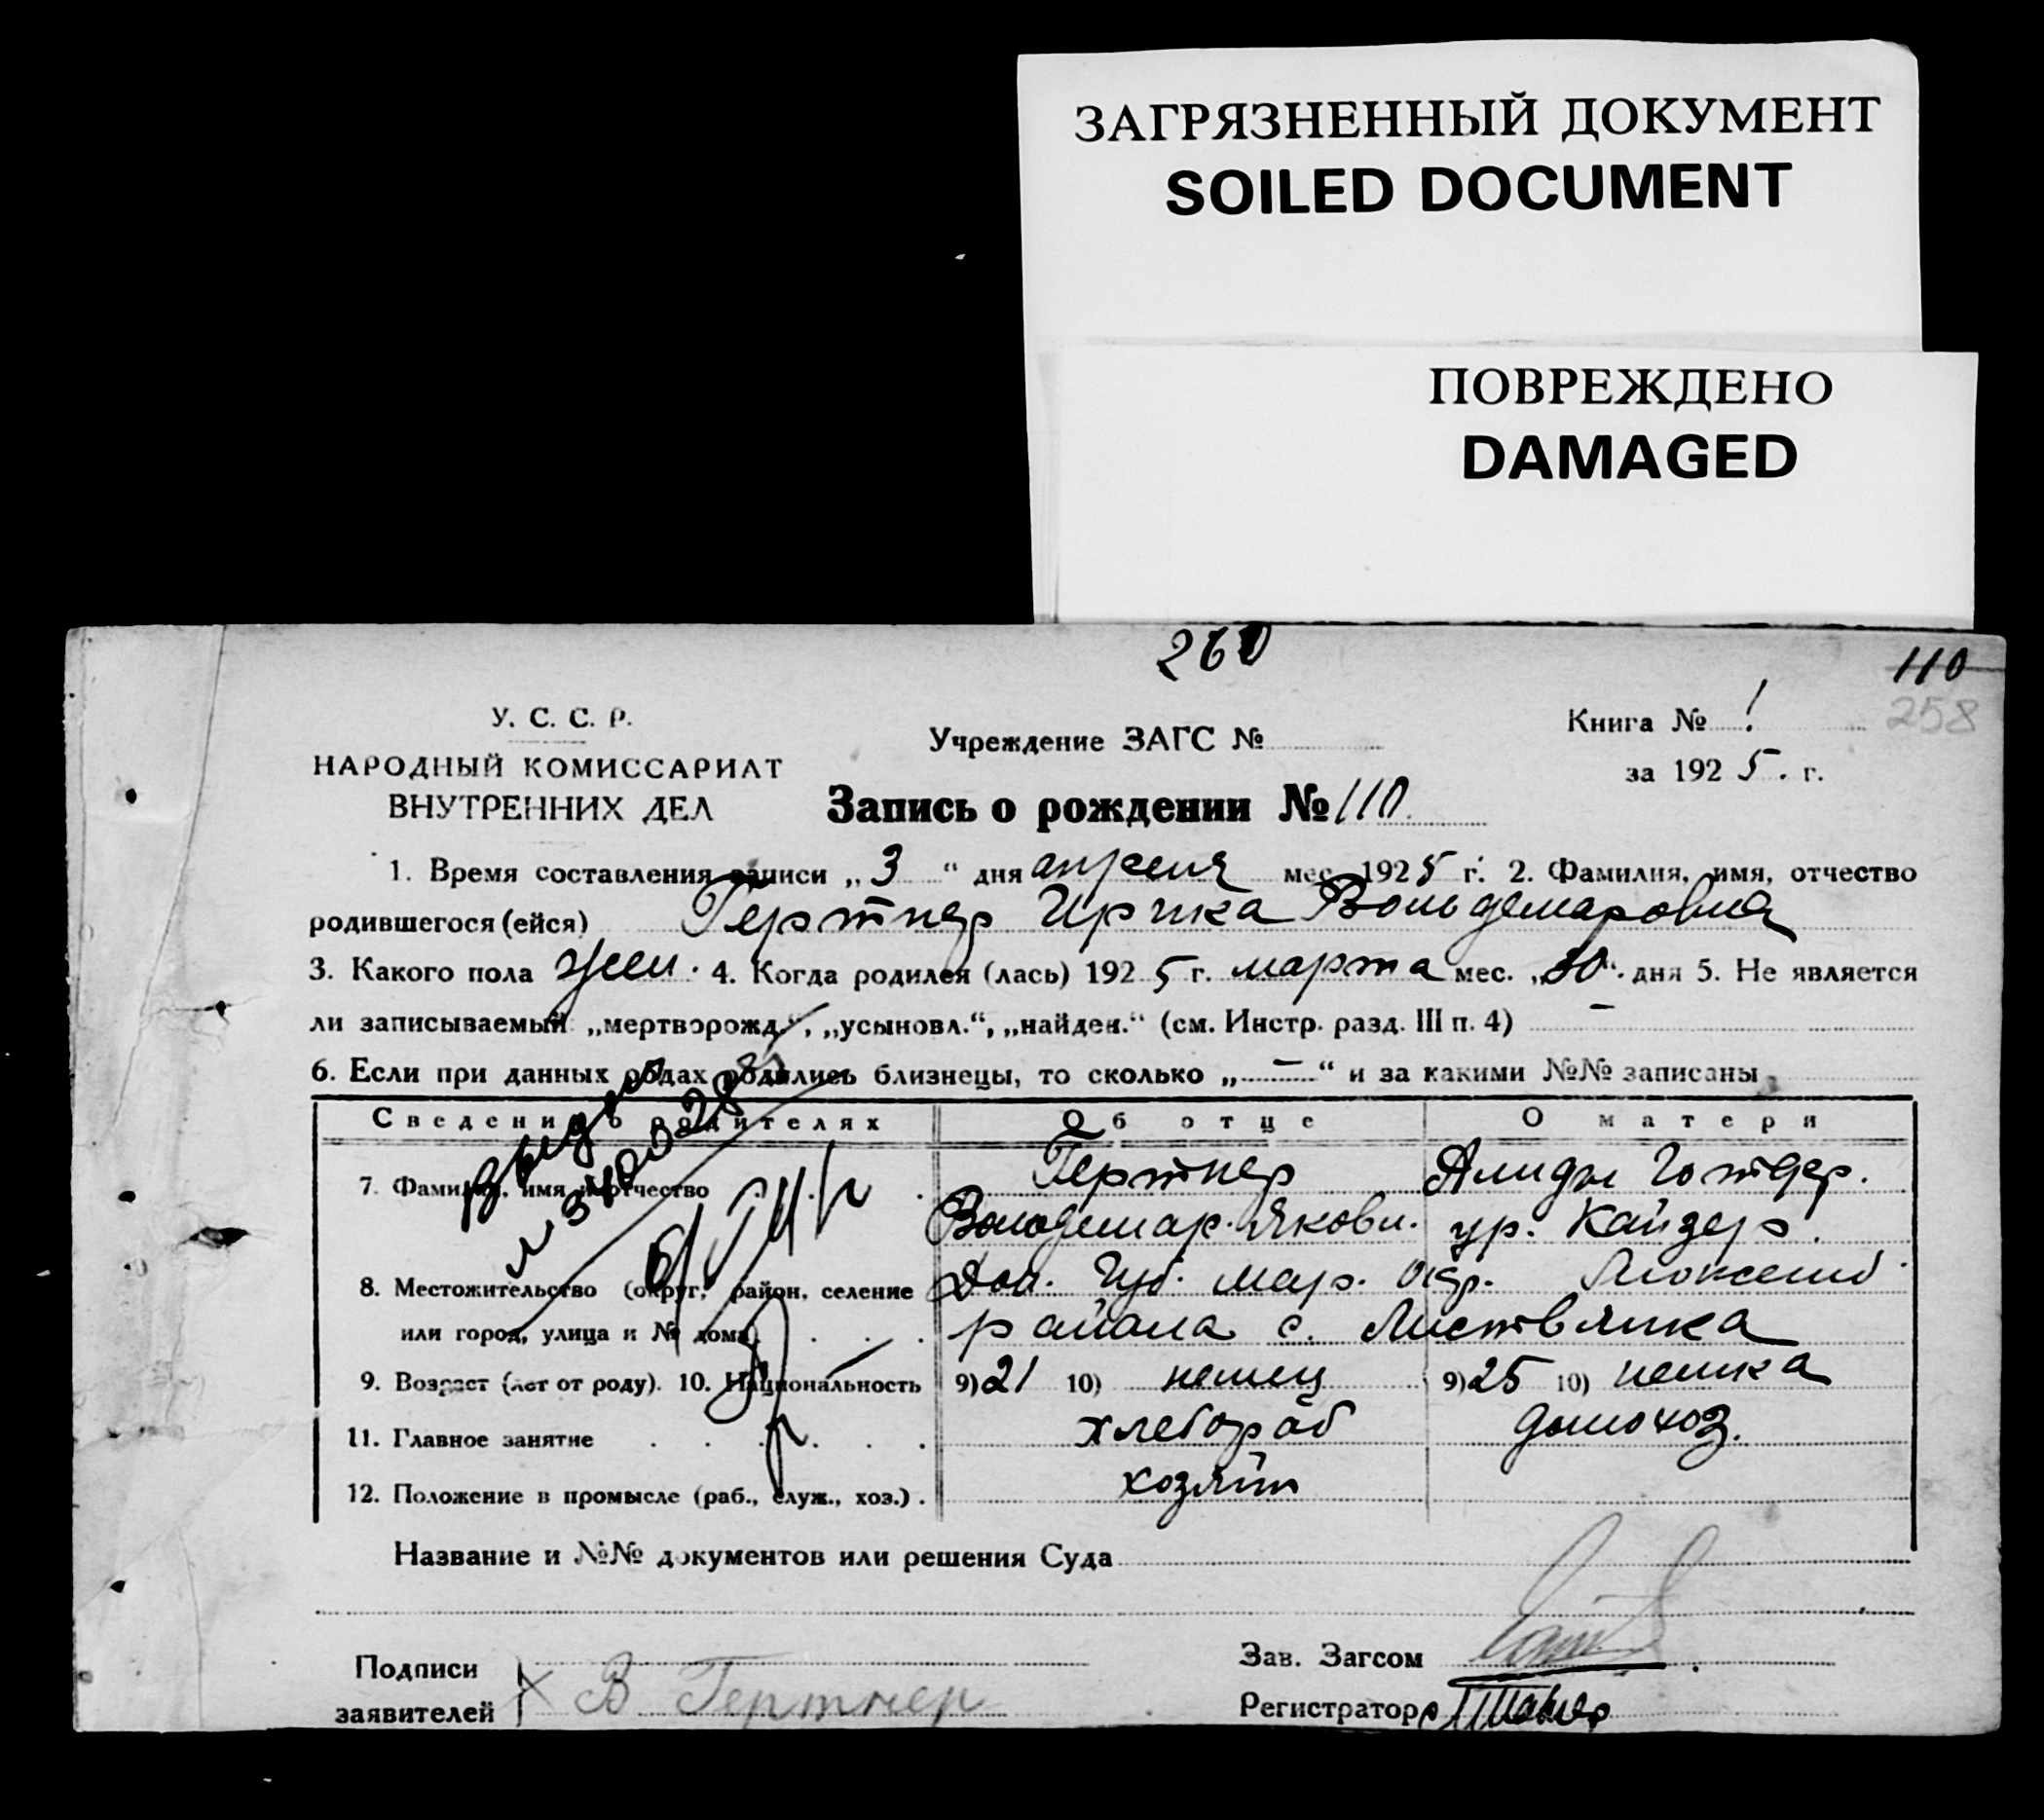 ЗАГРЯЗНЕННЫЙ ДОКУМЕНТ
SOILED DOCUMENT
ПОВРЕЖДЕНО
DAMAGED
260
110
258
У. С. С. Р.
НАРОДНЫЙ КОМИССАРИАТ
ВНУТРЕННИХ ДЕЛ
Учреждение ЗАГС №
Книга № 1
за 1925. г.
Запись о рождении № 110.
1. Время составления записи „3“ дня апреля мес. 1925 г. 2. Фамилия, имя, отчество
родившегося (ейся) Гертнер Ирика Вольдемаровна
3. Какого пола жен. 4. Когда родился (лась) 1925 г. марта мес. „30“ дня 5. Не является
ли записываемый „мертворожд.“, „усыновл.“, „найден.“ (см. Инстр. разд. III п. 4) –
6. Если при данных родах родились близнецы, то сколько „–“ и за какими №№ записаны
Сведения о родителях Об отце О матери
7. Фамилия, имя и отчество Гертнер Алиды Готфр.
Вольдемар. Яковл. ур. Кайзер.
8. Местожительство (округ, район, селение Дон. Губ. Мар. Окр. Люксемб.
или город, улица и № дома) района с. Листвянка
9. Возраст (лет от роду). 10. Национальность 9) 21 10) немец 9) 25 10) немка
11. Главное занятие хлебороб домохоз.
12. Положение в промысле (раб., служ., хоз.) хозяин
выдан
Название и №№ документов или решения Суда
Подписи
заявителей В Гертнер
Зав. Загсом
Регистратор